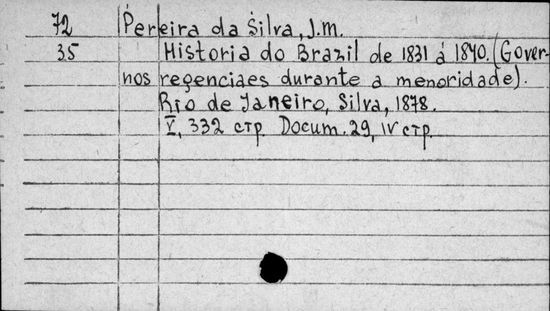 72 Pereira da Silva, J.M.
35 Historia do Brazil de 1831 á 1840. (Gover-
nos regenciaes durante a menoridade).
Rio de Janeiro, Silva, 1878.
V, 332 стр. Docum. 29, IV стр.